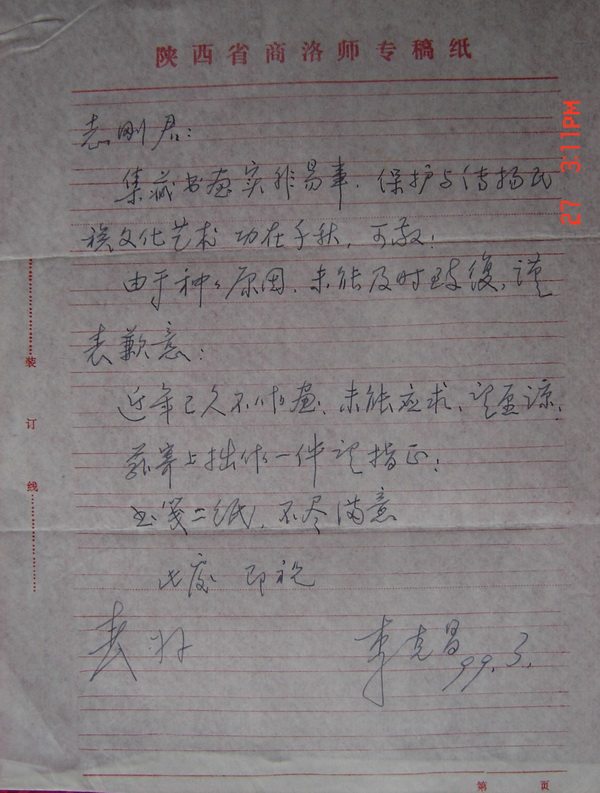 陕西省商洛师专稿纸
志刚君：
集藏书画实非易事，保护与传扬民
族文化艺术 功在千秋，可敬！
由于种种原因，未能及时致復，谨
表歉意：
近年已久不作画，未能应求，望原谅，
兹寄上拙作一件 请指正；
书笺二纸，不尽满意
此度 即祝
春好
李克昌
99.3.
装
订
线
第 页
27 3:11PM